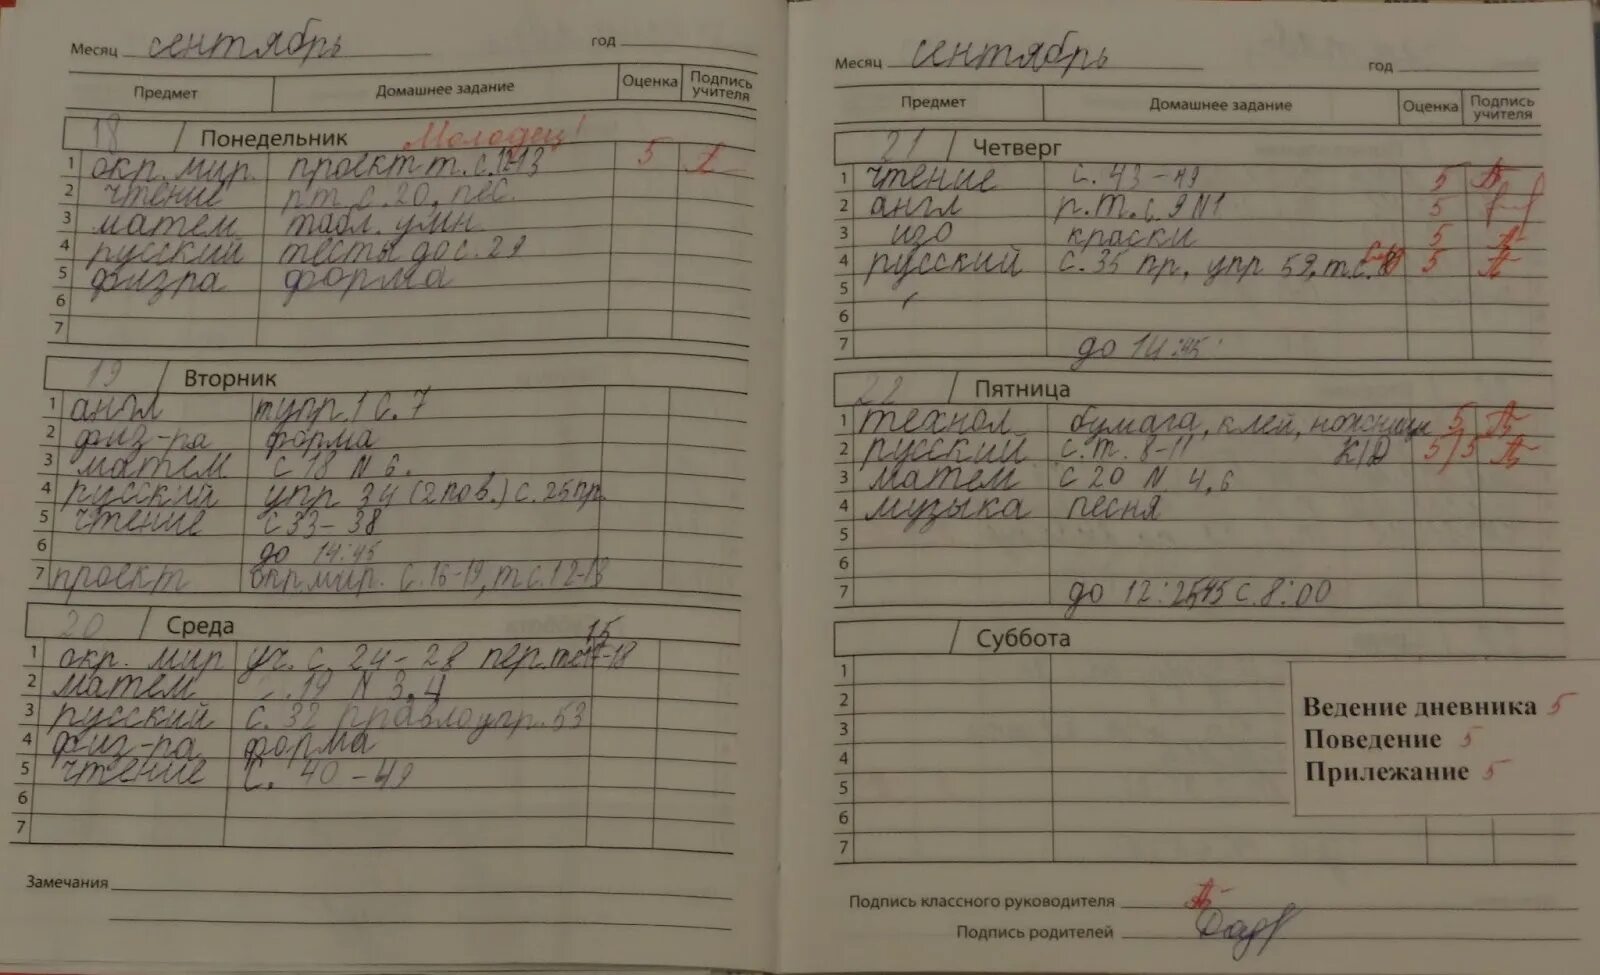 Месяц сентябрь год
Предмет Домашнее задание Оценка Подпись учителя
18 Понедельник Молодец!
1 окр. мир. проект т. с. 12-13 5
2 чтение р.т. с. 20, пес.
3 матем табл. умн.
4 русский тесты до с. 29
5 физра форма
6
7
19 Вторник
1 англ т упр. 1 с. 7
2 физ-ра форма
3 матем с 18 N 6.
4 русский упр 34 (2 пов.) с. 25 пр.
5 чтение с 33-38
6 до 14:45
7 проект окр. мир. с. 16-19, т с. 12-13
20 Среда
15
1 окр. мир уч. с. 24-28 пер. 17-18
2 матем с.19 N 3,4
3 русский с. 32 правло упр. 53
4 физ-ра форма
5 чтение с. 40-49
6
7
Замечания
Месяц сентябрь год
Предмет Домашнее задание Оценка Подпись учителя
21 Четверг
1 чтение с. 43-49 5
2 англ р.т. с. 9 N1 5
3 изо краски 5
4 русский с. 35 пр, упр 59, т с. 5
5
6
7 до 14:45
22 Пятница
1 технол бумага, клей, ножницы 5
2 русский с. т. 8-11 К/Д 5/5
3 матем с 20 N 4,6
4 музыка песня
5
6
7 до 12:25, с. 8:00
Суббота
1
2
3
4
5
6
7
Ведение дневника 5
Поведение 5
Прилежание 5
Подпись классного руководителя
Подпись родителей